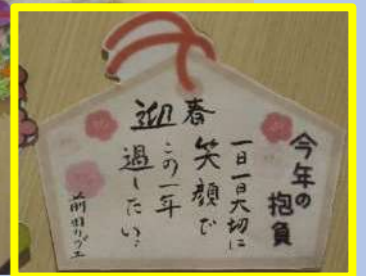 今年の抱負
一日一日大切に
笑顔で
この一年
過したい。
迎春